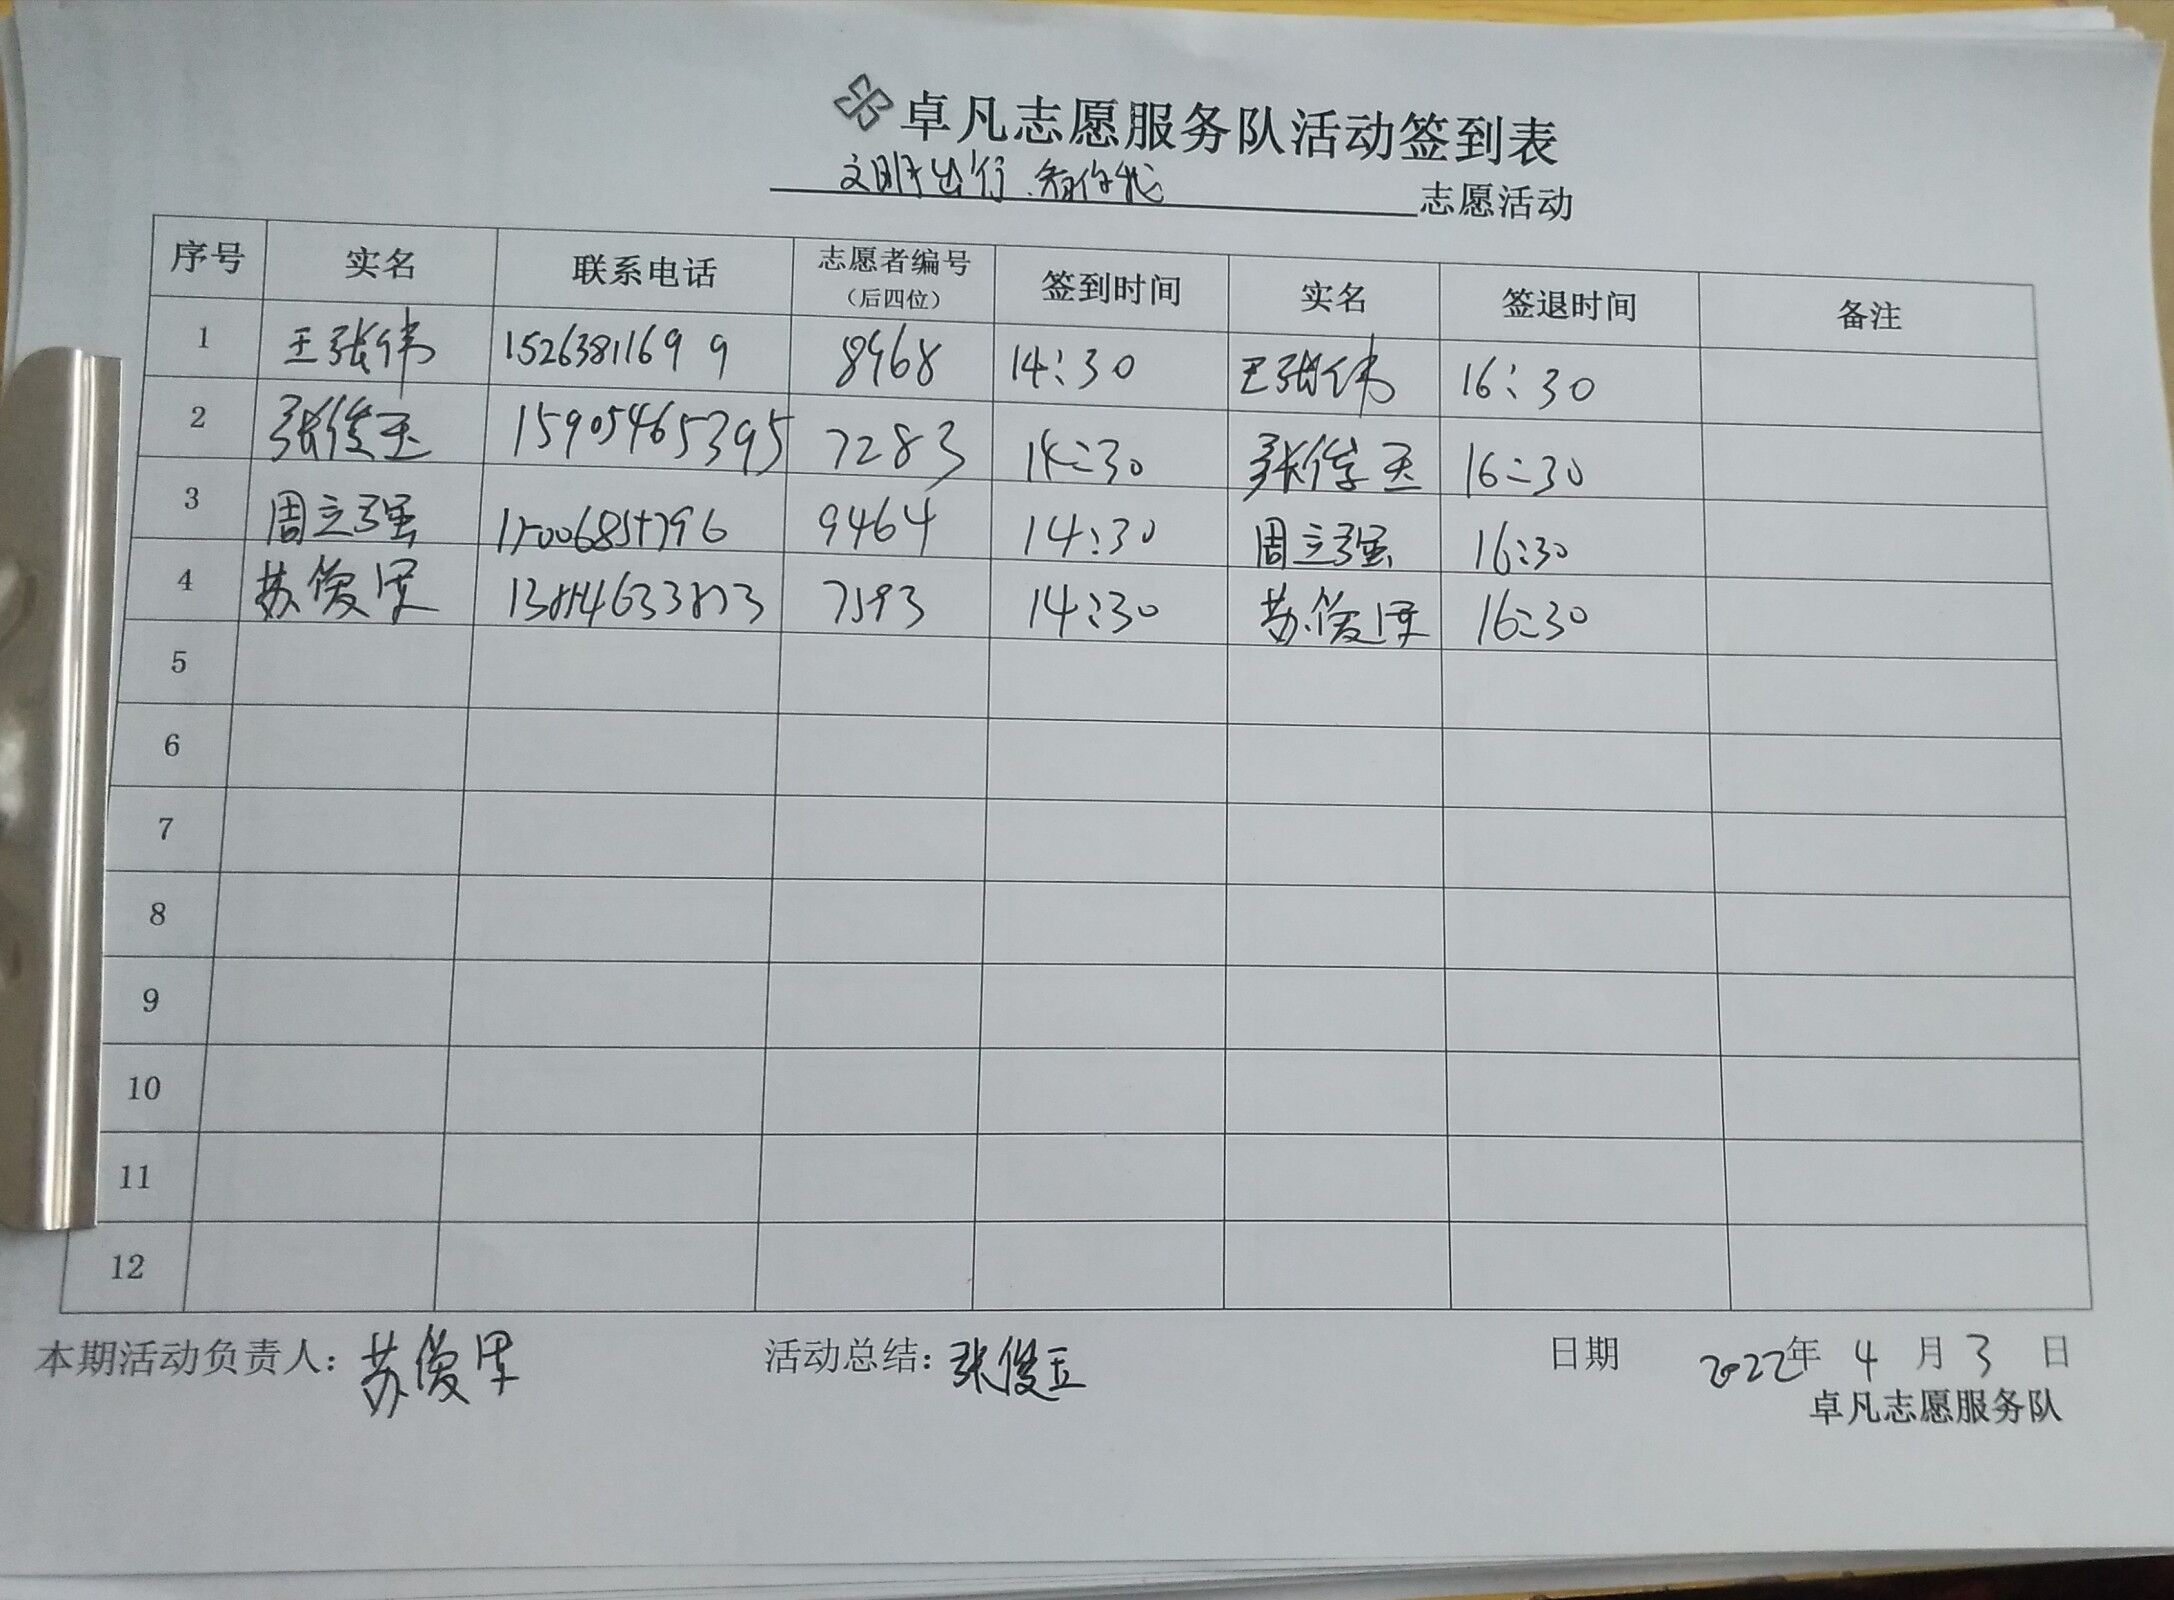 卓凡志愿服务队活动签到表
文明出行,有你我 志愿活动
序号 实名 联系电话 志愿者编号(后四位) 签到时间 实名 签退时间 备注
1 王张伟 15263811699 8968 14:30 王张伟 16:30
2 张俊玉 15905465395 7283 14:30 张俊玉 16:30
3 周立强 9464 14:30 周立强 16:30
4 苏俊军 7593 14:30 苏俊军 16:30
5
6
7
8
9
10
11
12
本期活动负责人:苏俊军 活动总结:张俊玉 日期 2022年 4 月 3 日
卓凡志愿服务队